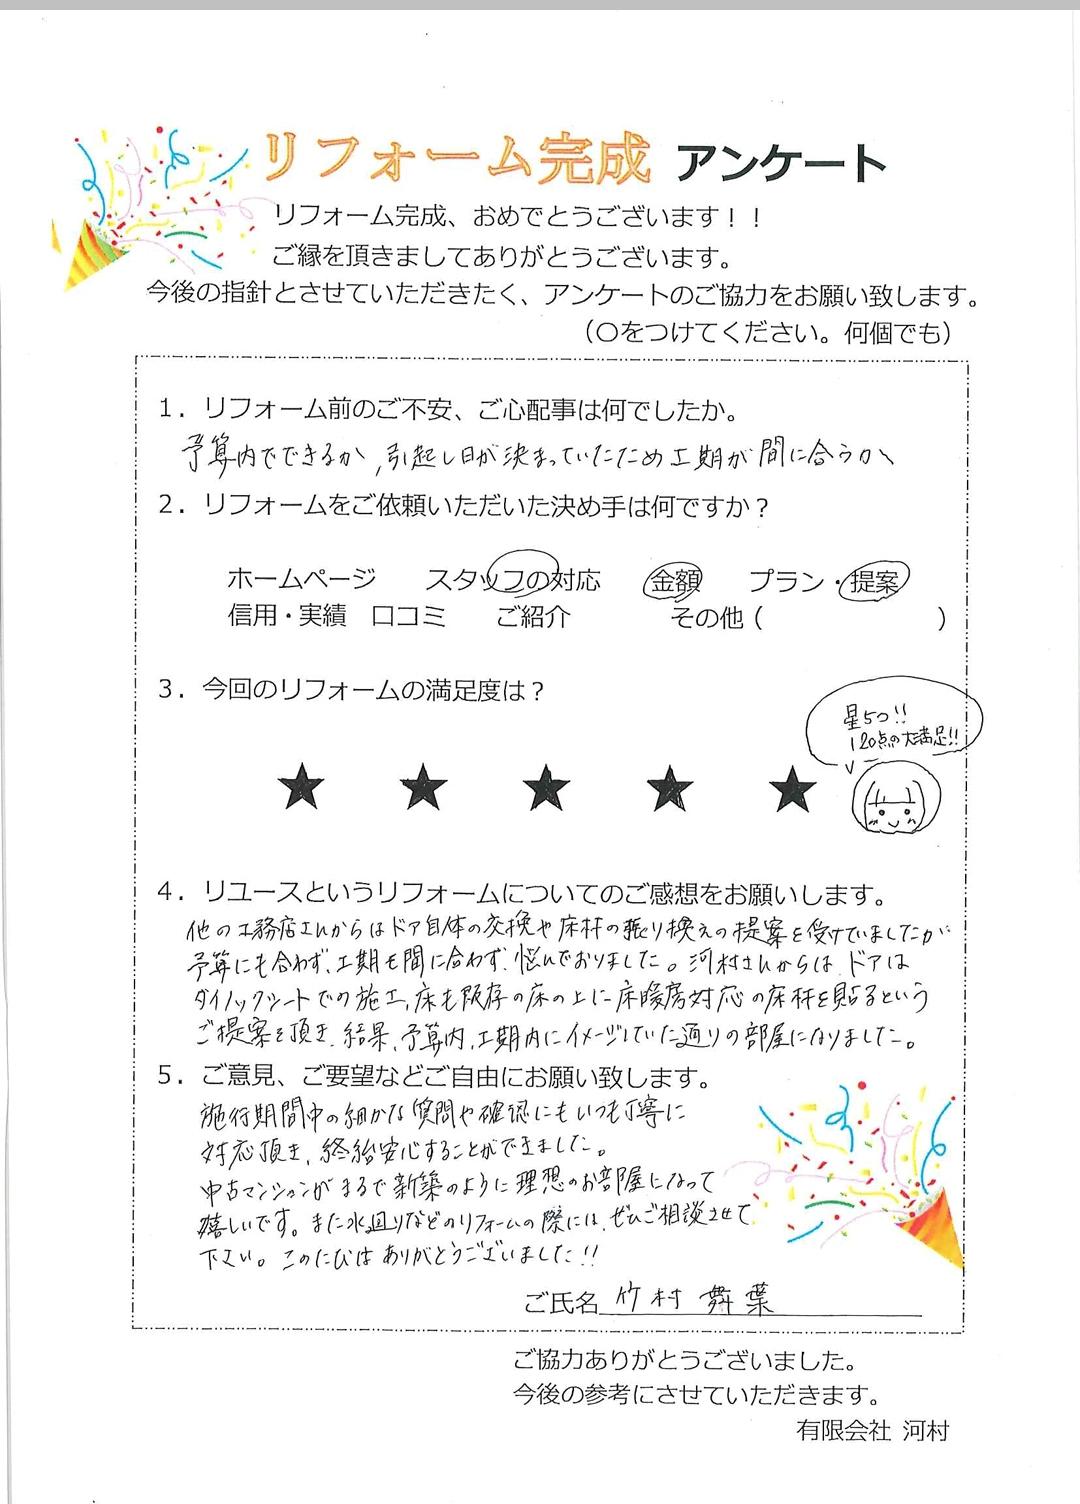 リフォーム完成 アンケート
リフォーム完成、おめでとうございます！！
ご縁を頂きましてありがとうございます。
今後の指針とさせていただきたく、アンケートのご協力をお願い致します。
（○をつけてください。何個でも）
１．リフォーム前のご不安、ご心配事は何でしたか。
予算内でできるか、引起し日が決まっていたため工期が間に合うか
２．リフォームをご依頼いただいた決め手は何ですか？
ホームページ スタッフの対応 金額 プラン・提案
信用・実績 口コミ ご紹介 その他（ ）
３．今回のリフォームの満足度は？
星5つ!!
120点の大満足!!
★ ★ ★ ★ ★
４．リユースというリフォームについてのご感想をお願いします。
他の工務店さんからはドア自体の交換や床材の張り換えの提案を受けていましたが
予算にも合わず、工期も間に合わず、悩んでおりました。河村さんからは、ドアは
ダイノックシートでの施工、床も既存の床の上に床暖房対応の床材を貼るという
ご提案を頂き、結果、予算内、工期内にイメージしていた通りの部屋になりました。
５．ご意見、ご要望などご自由にお願い致します。
施行期間中の細かな質問や確認にもいつも丁寧に
対応頂き、終始安心することができました。
中古マンションがまるで新築のように理想のお部屋になって
嬉しいです。また水廻りなどのリフォームの際には、ぜひご相談させて
下さい。このたびはありがとうございました!!
ご氏名 竹村 舞葉
ご協力ありがとうございました。
今後の参考にさせていただきます。
有限会社 河村